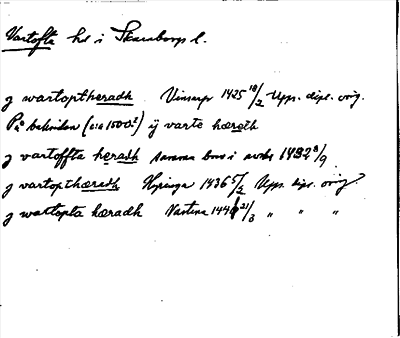 Vartofta hd i Skaraborgs l.
j wartoptheradh Vinsarp 1425 18/2 Upps. dipl. orig.
På baksidan (c:a 1500?) ij varte hæreth
j vartoffta heradh samma brev i avskr 1492 8/9
j vartopthæradh 1436 5/2 Upps. dipl. orig.
j wartopta hæradh Vastena 144 21/3 " " "